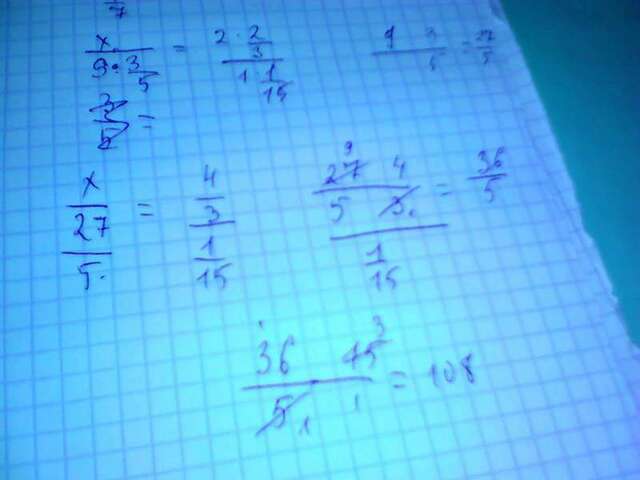 7
x / 9 · 3/5 = 2 · 2/3 / 1 · 1/15
9 3 / 5 = 27/5
x / 27/5 = 4/3 / 1/15
27 9 4 / 5 3 / 1/15 = 36/5
36 15 3 / 5 1 1 = 108